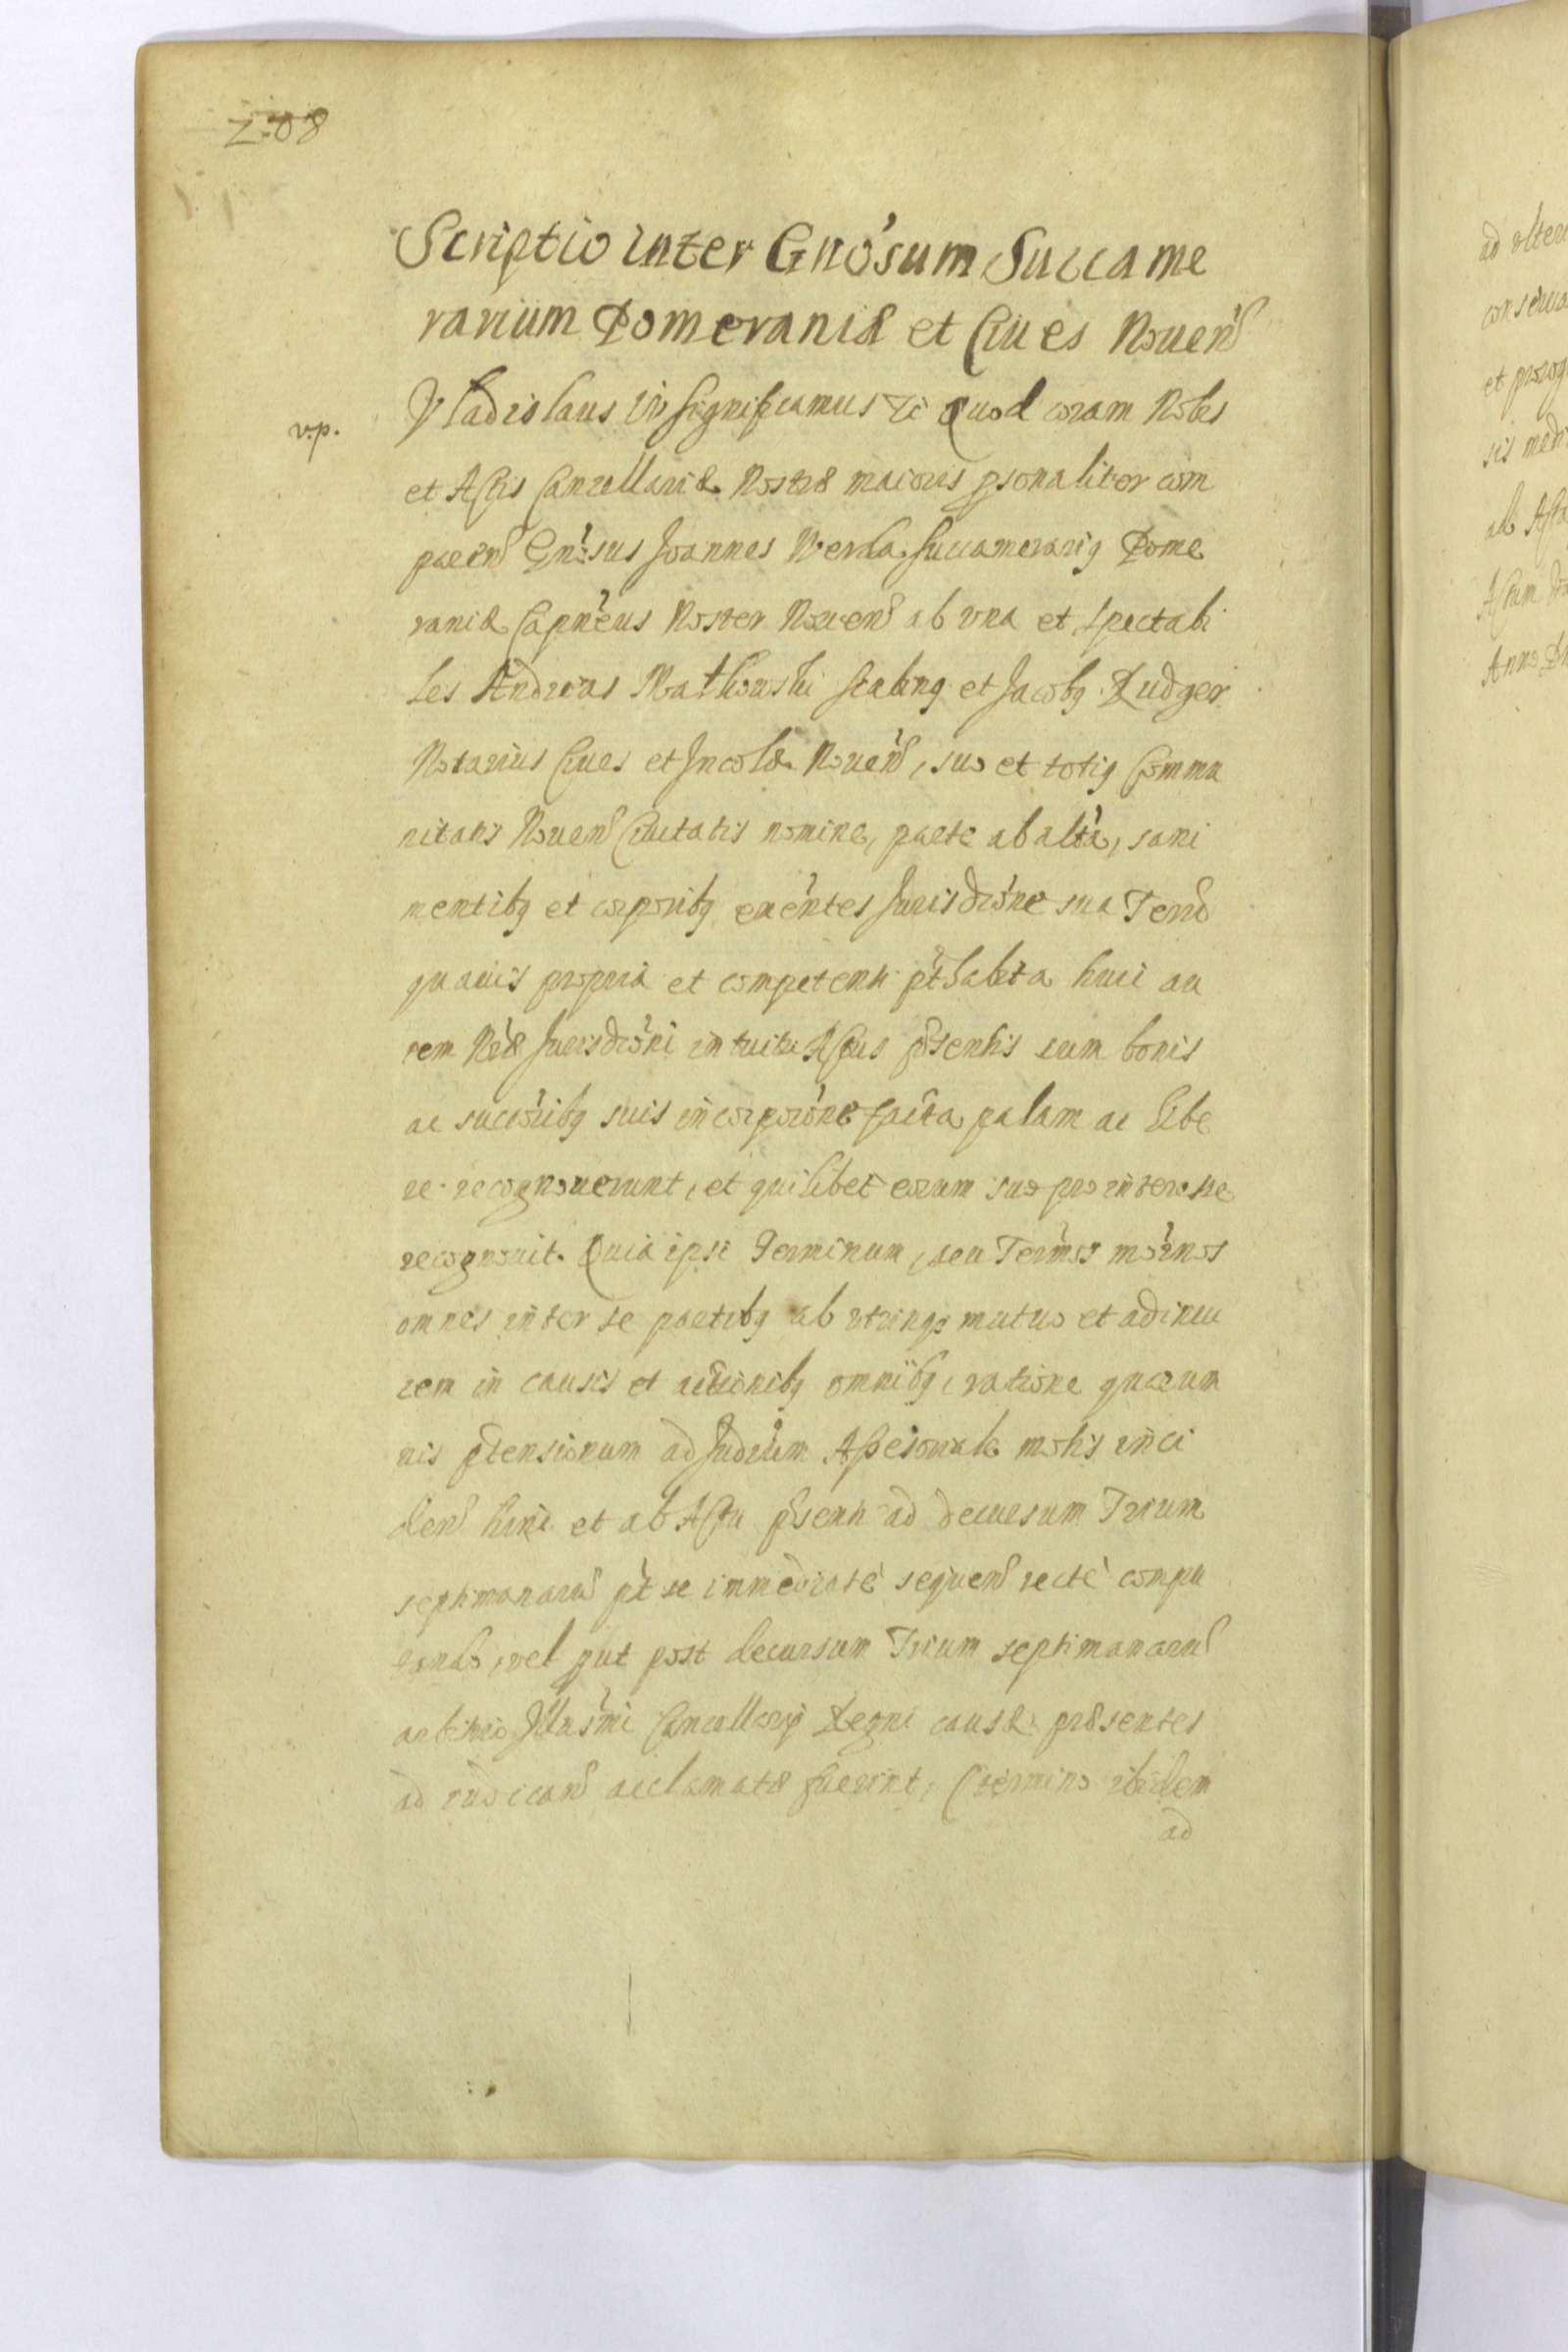 208
Scriptio inter Gnõsum Succame
rarium Pomeraniæ et Ciues Nouen̄
v.p.
Vladislaus IV Significamus &c Quod coram Nobis
et Actis Cancellariæ Nostræ maioris psonaliter com
paren̄ Gnōsus Joannes Werda Succamerarig Pome
raniæ Capnēus Noster Nouen̄ ab vna et Spectabi
les Andreas Matkowski Scabing et Jacobg Rudger
Notarius Ciues et Incolæ Nouen̄, suo et totig Commu
nitatis Nouen̄ Ciuitatis nomine, parte ab altā, sani
mentibg et corporibg existentes Jurisdrōne sua Terrō
quauis propria et competenti pt̄habita huic au
tem Nrǣ Jurisdrōni intuitu Actus prsentis cum bonis
ac succōribg suis incorporōne facta palam ac libe
re recognouerunt, et quilibet eorum suo pro interesse
recognouit. Quia ipsi Terminum, seu Termos mōrnos
omnes inter se partibg ab vtrinq mutuo et adinui
cem in causis et actionibg omnibg, ratione quarum
uis ptensionum ad Judium Assessoriale motis inci
den̄ hinc et ab Actu prsenti ad decursum Trium
septimanarū pt se immediatè sequen̄ rectè compu
tando, vel put post decursum Trium septimanarū
arbitrio Illusmi Cancellarij Regni causæ præsentes
ad iudican̄ acclamatæ fuerint, (termino ibidem
ad
ad vlteri
et prorog
sis medi
ab Actu
Actum
Anno